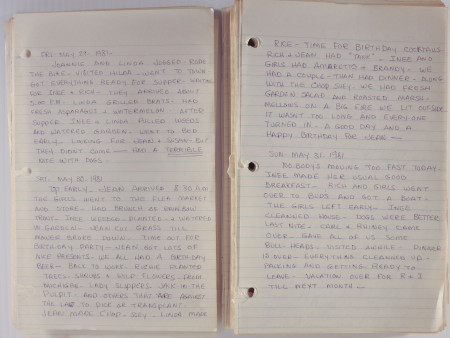 FRI. MAY 29, 1981.
JEANNIE AND LINDA JOGGED - RODE
THE BIKE - VISITED HILDA - WENT TO TOWN
GOT EVERYTHING READY FOR SUPPER. WAITING
FOR INEZ & RICH - THEY ARRIVED ABOUT
P.M. LINDA GRILLED BRATS - HAD
FRESH ASPARAGUS & WATERMELON. AFTER
SUPPER INEZ & LINDA PULLED WEEDS
AND WATERED GARDEN. WENT TO BED
EARLY - LOOKING FOR JEAN & SUGAR BUT
THEY DIDN'T COME - HAD A TERRIBLE
NITE WITH DOGS.
SAT. MAY 30, 1981
UP EARLY - JEAN ARRIVED 8:30 A.M.
THE GIRLS WENT TO THE FLEA MARKET
AND STORE - HAD BRUNCH AT
INEZ WEEDED - PLANTED & WATERED
GARDEN - JEAN CUT GRASS TILL
MOWER BROKE DOWN - TIME OUT FOR
BIRTHDAY PARTY - JEAN GOT LOTS OF
NICE PRESENTS - WE ALL HAD A BIRTHDAY
BEER - BACK TO WORK - RICHIE PLANTED
TREES - SHRUBS & WILD FLOWERS - FROM
MICHIGAN. LADY SLIPPERS - JACK IN THE
PULPIT - AND OTHERS THAT ARE AGAINST
THE LAW TO PICK OR TRANSPLANT.
JEAN MADE CHOP - SUEY - LINDA MADE
RICE - TIME FOR BIRTHDAY COCKTAILS
RICH & JEAN HAD "JACK" - INEZ AND
GIRLS HAD AMARETTO & BRANDY - WE
HAD A COUPLE - THEN HAD DINNER - ALONG
WITH THE CHOP SUEY - WE HAD FRESH
GARDEN SALAD AND ROASTED MARSH-
MELLOWS ON A BIG FIRE WE LIT OUTSIDE.
IT WASN'T TOO LONG AND EVERYONE
TURNED IN - A GOOD DAY AND A
HAPPY BIRTHDAY FOR JEAN -
SUN. MAY 31, 1981
NOBODYS MOVING TOO FAST TODAY -
INEZ MADE HER USUAL GOOD
BREAKFAST - RICH AND GIRLS WENT
OVER TO BUDS AND GOT A BOAT -
THE GIRLS LEFT EARLY - INEZ
CLEANED HOUSE - DOGS WERE BETTER
LAST NITE. CARL & RHINEY CAME
OVER - GAVE ALL OF US SOME
BULL HEADS - VISITED AWHILE - DINNER
IS OVER - EVERYTHING CLEANED UP -
PACKING AND GETTING READY TO
LEAVE - VACATION OVER FOR R & I
TILL NEXT MONTH -